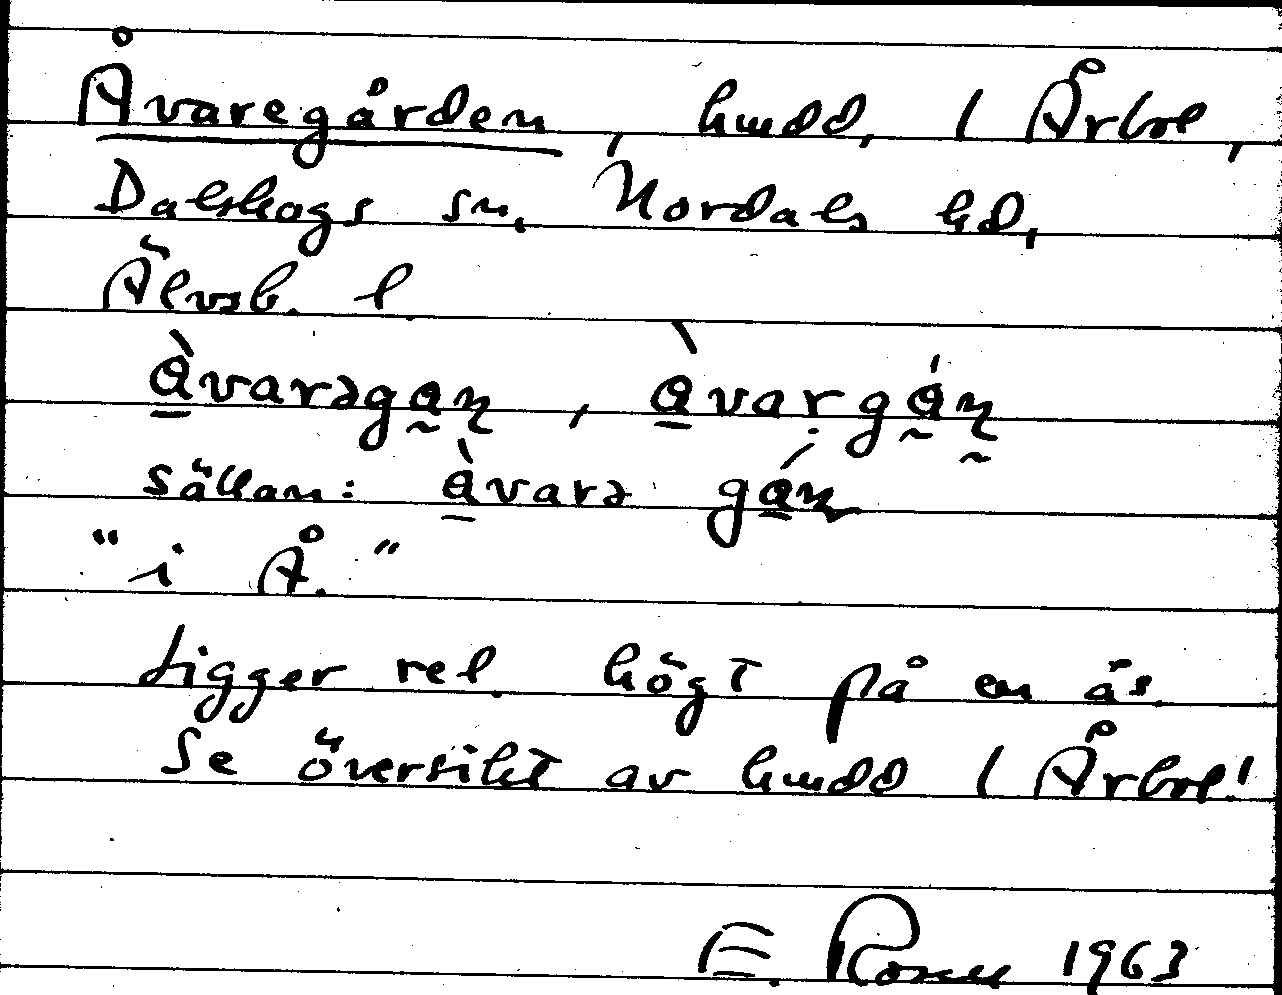 Åvaregården, hmdd, / Årbol,
Dalskogs sn, Nordals hd,
Älvsb. l.
àvarəgan, àvargán
sällan: àvarə gán
"i Å."
Ligger rel. högt på en ås.
Se översikt av hmdd / Årbol!
E. Rosén 1963